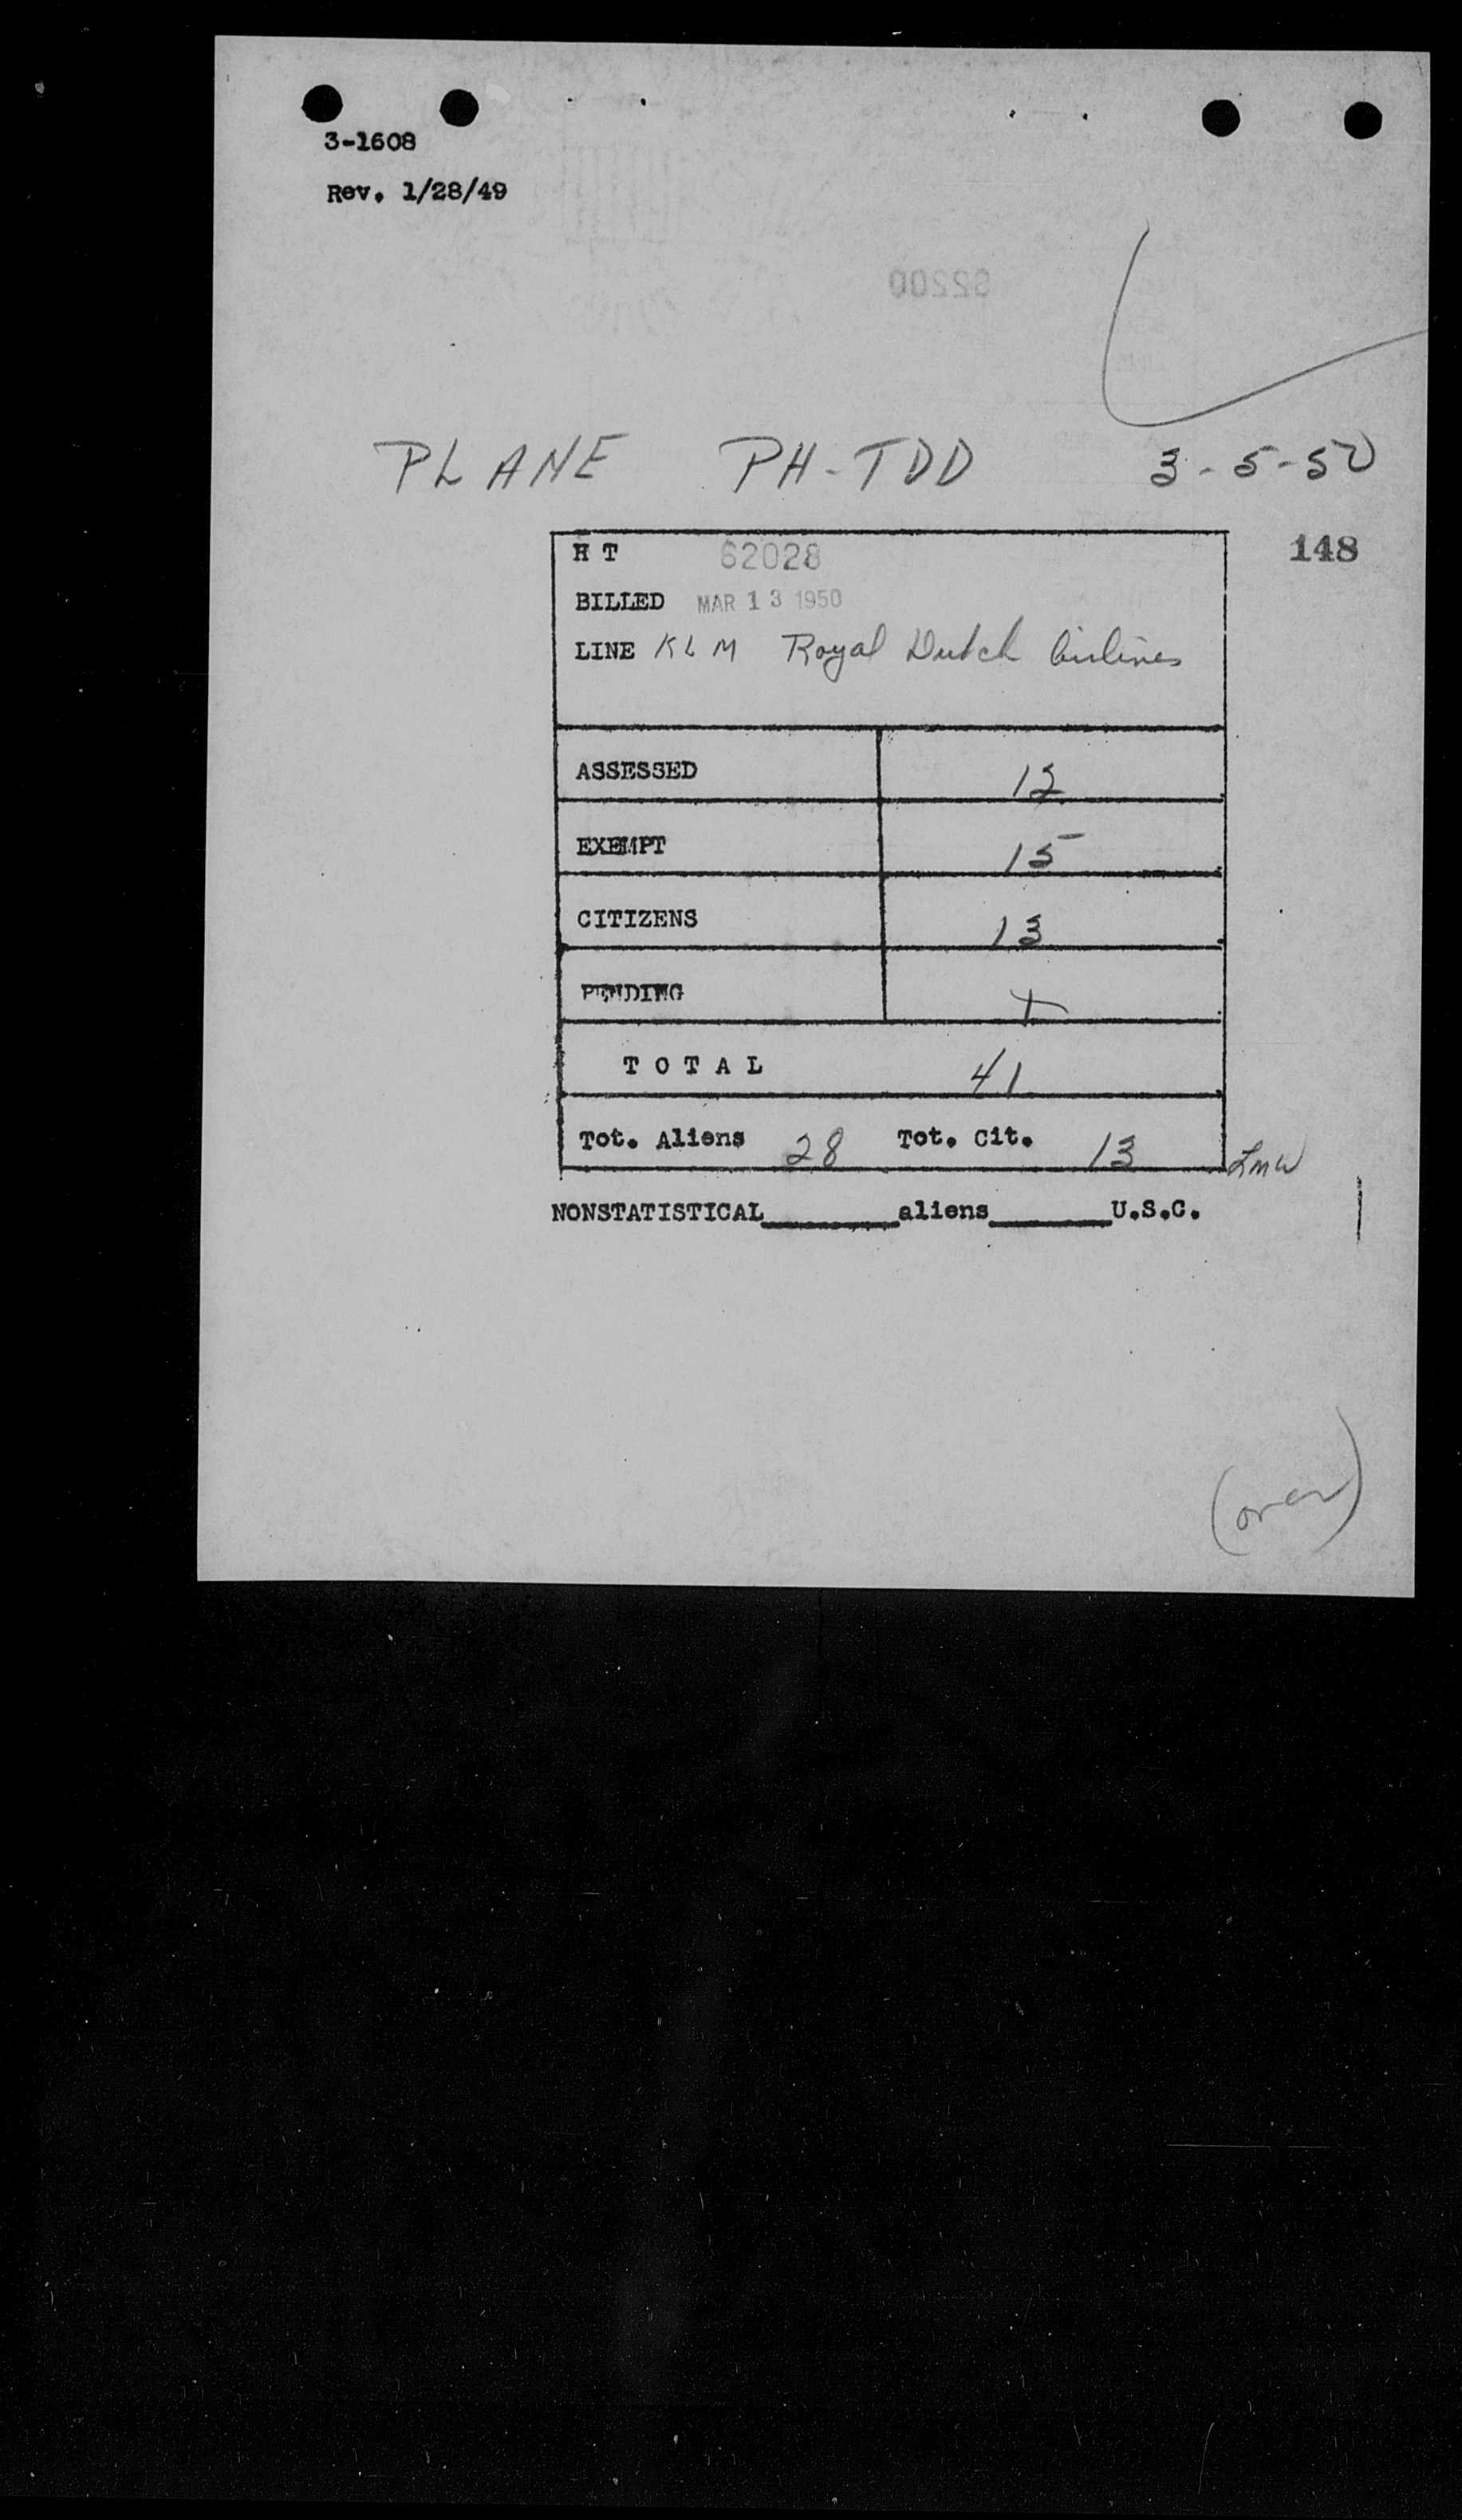 3-1608
Rev. 1/28/49
PLANE PH-TDD 3-5-50
148
H T 62028
BILLED MAR 13 1950
LINE KLM Royal Dutch Airlines
ASSESSED 12
EXEMPT 15
CITIZENS 13
PENDING
TOTAL 41
Tot. Aliens 28 Tot. Cit. 13
LMW
NONSTATISTICAL________aliens_______U.S.C.
(over)